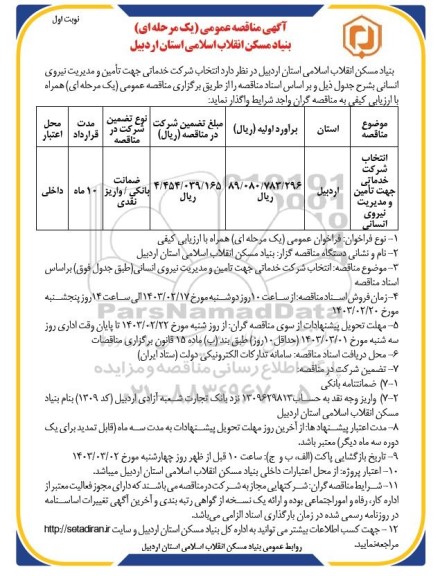 نوبت اول
آگهی مناقصه عمومی (یک مرحله ای)
بنیاد مسکن انقلاب اسلامی استان اردبیل
بنیاد مسکن انقلاب اسلامی استان اردبیل در نظر دارد انتخاب شرکت خدماتی جهت تأمین و مدیریت نیروی
انسانی بشرح جدول ذیل و بر اساس اسناد مناقصه را از طریق برگزاری مناقصه عمومی (یک مرحله ای) همراه
با ارزیابی کیفی به مناقصه گران واجد شرایط واگذار نماید:
موضوع مناقصه
استان
برآورد اولیه (ریال)
مبلغ تضمین شرکت در مناقصه (ریال)
نوع تضمین شرکت در مناقصه
مدت قرارداد
محل اعتبار
انتخاب شرکت خدماتی جهت تأمین و مدیریت نیروی انسانی
اردبیل
۸۹/۰۸۰/۷۸۳/۲۹۶ ریال
۴/۴۵۴/۰۳۹/۱۶۵ ریال
ضمانت بانکی / واریز نقدی
۱۰ ماه
داخلی
۱- نوع فراخوان: فراخوان عمومی (یک مرحله ای) همراه با ارزیابی کیفی
۲- نام و نشانی دستگاه مناقصه گزار: بنیاد مسکن انقلاب اسلامی استان اردبیل
۳- موضوع مناقصه: انتخاب شرکت خدماتی جهت تامین و مدیریت نیروی انسانی (طبق جدول فوق) براساس
اسناد مناقصه
۴- زمان فروش اسناد مناقصه: از ساعت ۱۰ روز دوشنبه مورخ ۱۴۰۳/۰۲/۱۷ الی ساعت ۱۴ روز پنجشنبه
مورخ ۱۴۰۳/۰۲/۲۰
۵- مهلت تحویل پیشنهادات از سوی مناقصه گران: از روز شنبه مورخ ۱۴۰۳/۰۲/۲۲ تا پایان وقت اداری روز
سه شنبه مورخ ۱۴۰۳/۰۳/۰۱ (حداقل ۱۰ روز) طبق بند (ب) ماده ۱۵ قانون برگزاری مناقصات
۶- محل دریافت اسناد مناقصه: سامانه تدارکات الکترونیکی دولت (ستاد ایران)
۷- تضمین شرکت در مناقصه:
۷-۱) ضمانتنامه بانکی
۷-۲) واریز وجه نقد به حساب ۱۳۰۹۶۲۹۸۱۳ نزد بانک تجارت شعبه آزادی اردبیل (کد ۱۳۰۹) بنام بنیاد
مسکن انقلاب اسلامی استان اردبیل
۸- مدت اعتبار پیشنهاد ها: از آخرین روز مهلت تحویل پیشنهادات به مدت سه ماه (قابل تمدید برای یک
دوره سه ماه دیگر) معتبر باشد.
۹- تاریخ بازگشایی پاکت (الف، ب و ج): ساعت ۱۰ قبل از ظهر روز چهارشنبه مورخ ۱۴۰۳/۰۳/۰۲
۱۰- اعتبار پروژه: از محل اعتبارات داخلی بنیاد مسکن انقلاب اسلامی استان اردبیل میباشد.
۱۱- شرایط مناقصه گران: شرکتهایی مجاز به شرکت در مناقصه می باشند که دارای مجوز فعالیت معتبر از
اداره کار، رفاه و امور اجتماعی بوده و ارائه یک نسخه از گواهی رتبه بندی و آخرین آگهی تغییرات اساسنامه
در روزنامه رسمی شده در زمان بارگذاری اسناد الزامی می‌باشد.
۱۲- جهت کسب اطلاعات بیشتر می توانید به اداره کل بنیاد مسکن استان اردبیل و سایت http://setadiran.ir
مراجعه نمایید.
روابط عمومی بنیاد مسکن انقلاب اسلامی استان اردبیل